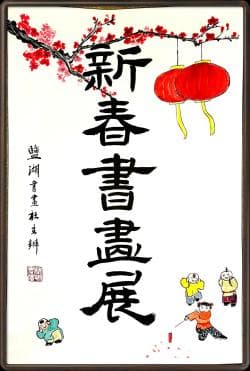 新春書畫展
鹽湖書畫社主辦